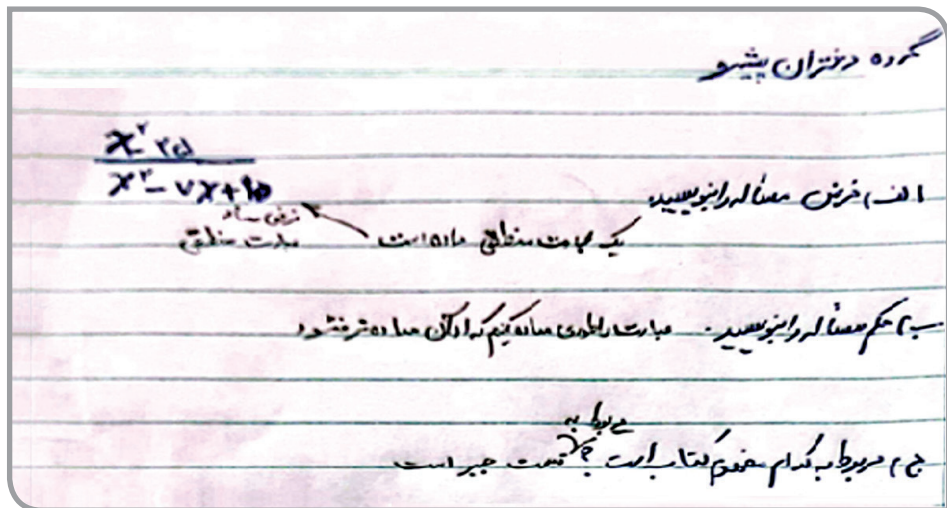 گروه دختران پیشرو
x² - ۲۵
x² - ۷x + ۱۰
الف) فرض مسئله را بنویسید.
یک عبارت منطقی داده است
عبارت منطقی
ب) حکم مسئله را بنویسید. عبارت را طوری ساده کنیم که از آن ساده‌تر نشود
مربوط به
ج) مربوط به کدام مفهوم کتاب است؟ قسمت جبر است